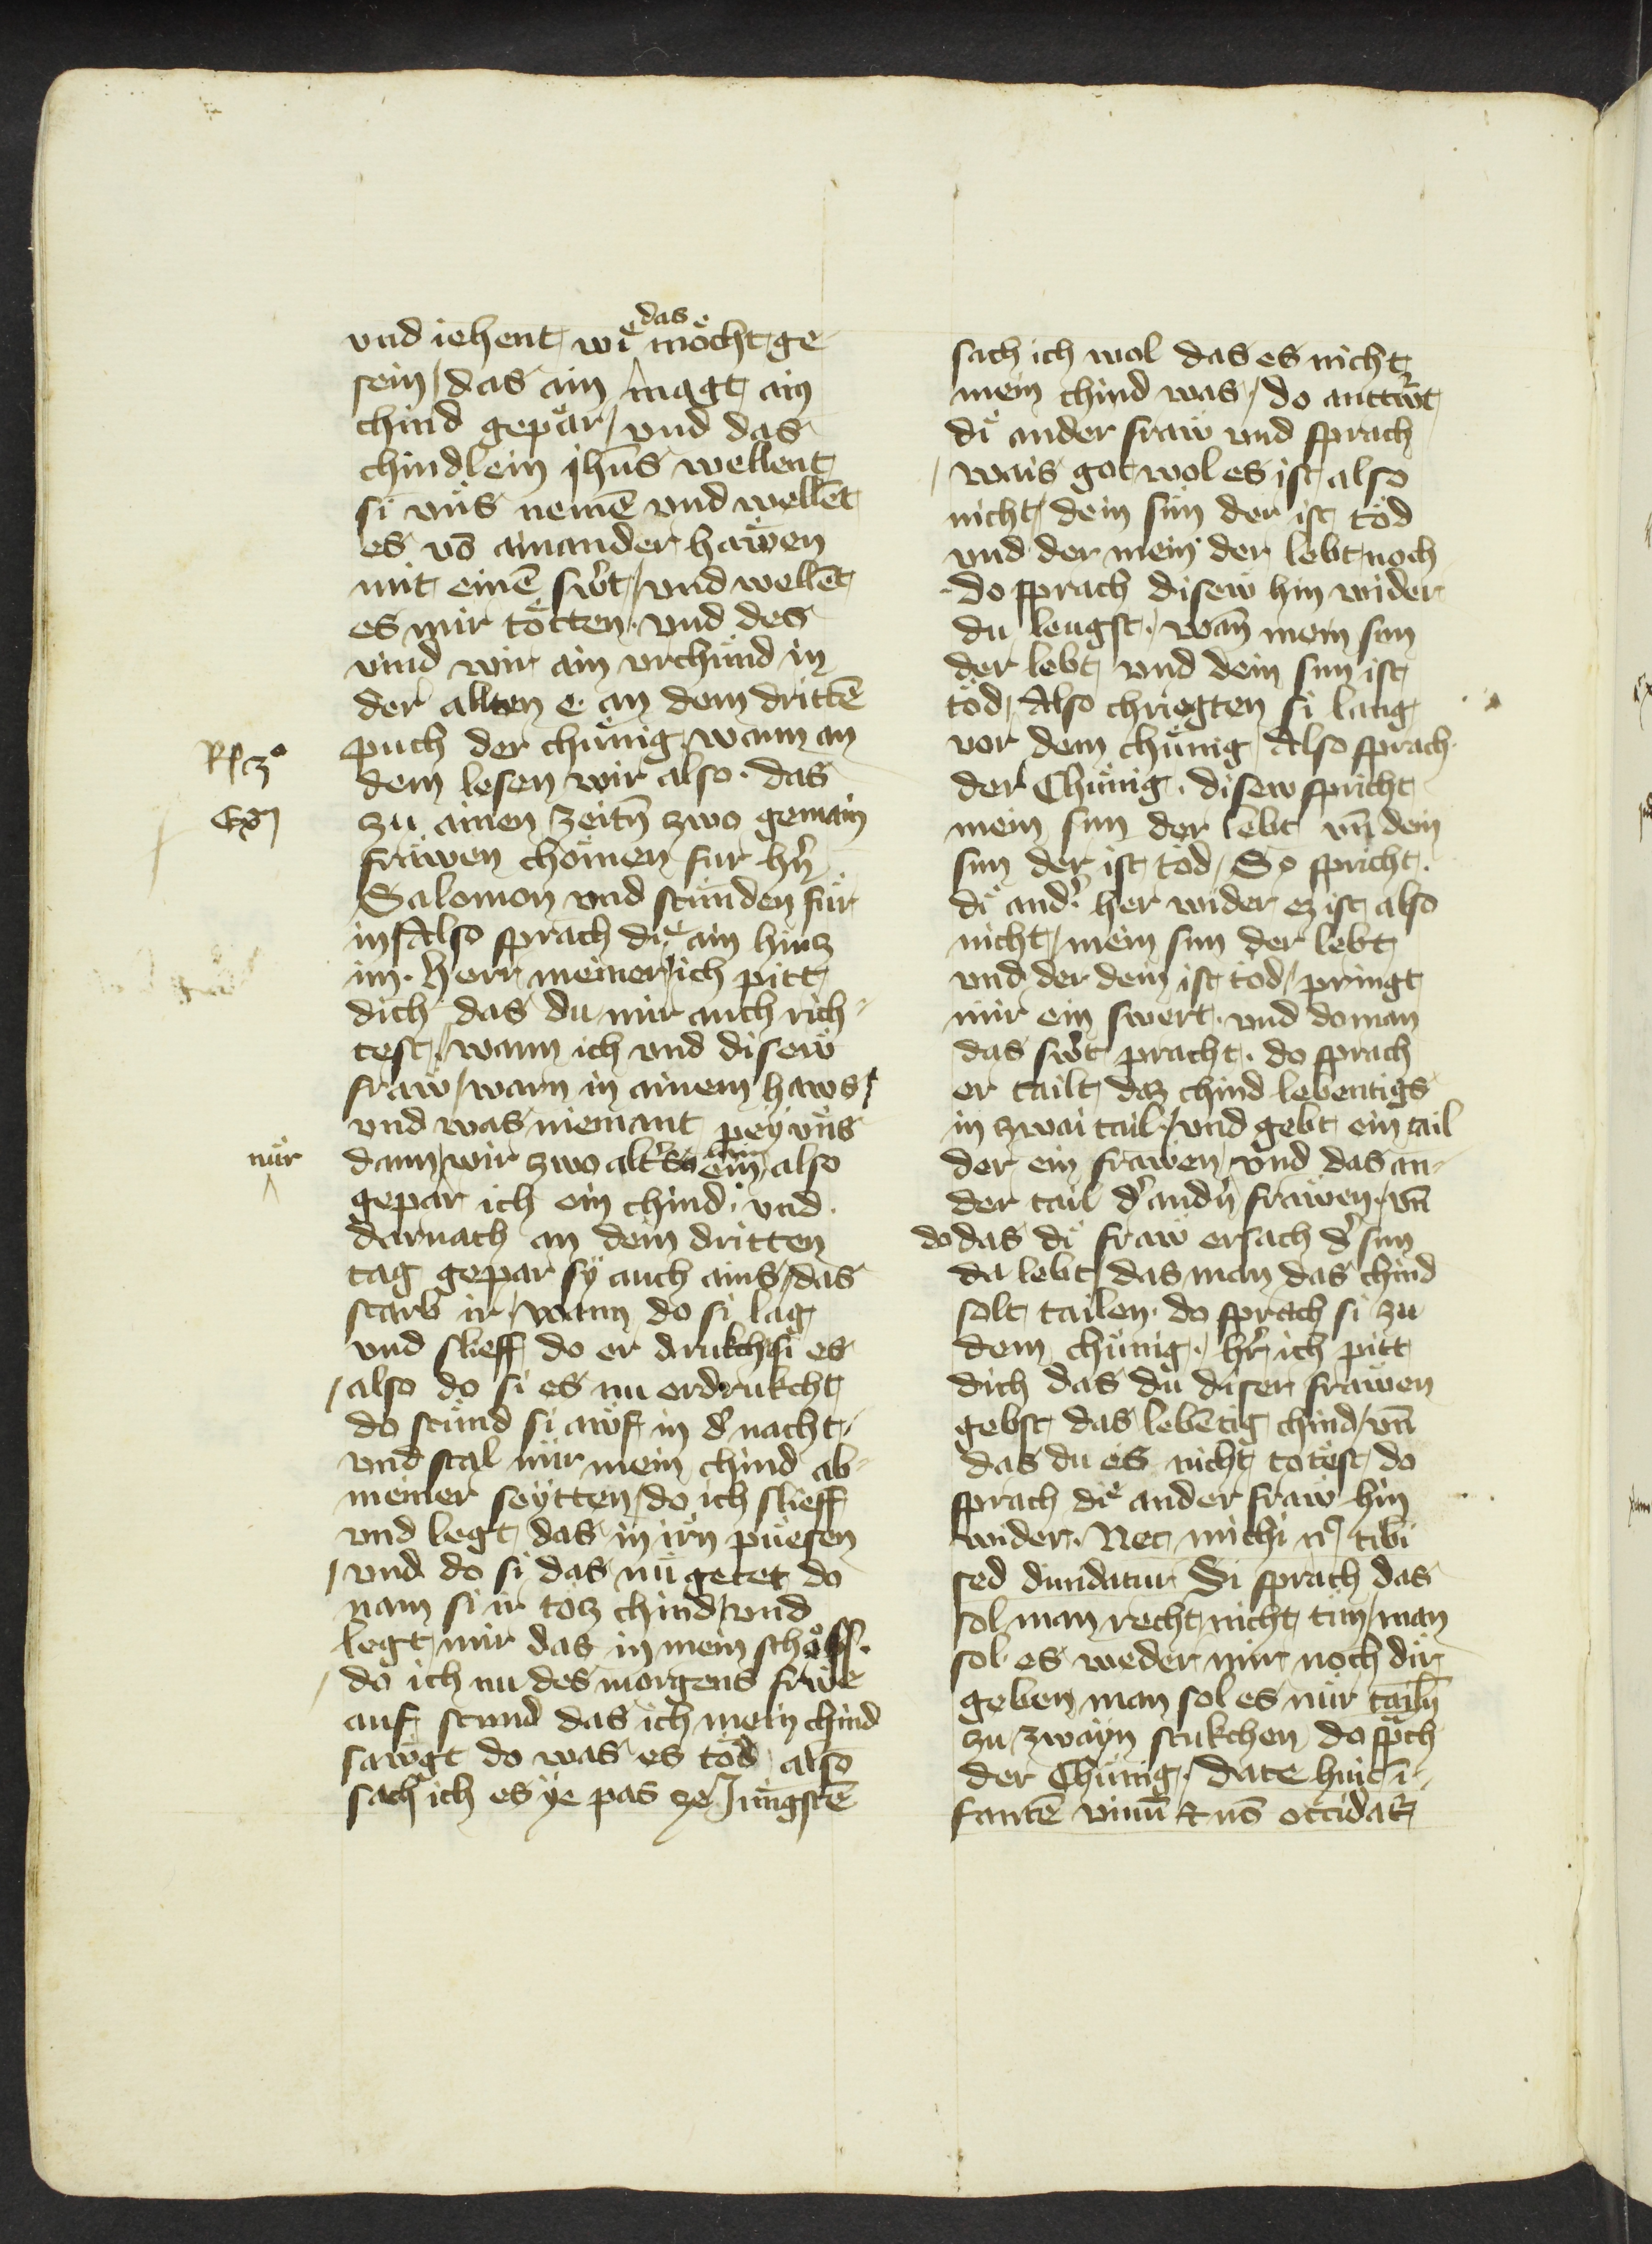 vnd iehent wie das möcht ge
sein / das ain magt ain
chind gepär / vnd das
chindlein ihūs wellent
si vns nemē vnd wellēt
es vō ainander hawen
mit einē sw̓t / vnd wellēt
es mir tötten · vnd des
vind wir ain vrchünd in
der allten e · an dem drittē
puch der chünig wann an
dem lesen wir also · das
zu ainen zeitn̄ zwo gemain
frawen chömen fur hn̄
Salomon vnd stünden für
in / Also sprach die ain hinz
im · herr meiner / ich pitt
dich das du mir auch rich-
test / wann ich vnd disew
fraw / warn in ainem haws /
vnd was niemant pey vns
nür
dann / wir zwo also
gepar ich ein chind · vnd
darnach an dem dritten
tag gepar sy auch ains / das
starb ir / wann do si lag
vnd slieff do er drukch si es
/ also do si es nu erdrukcht
do stünd si awf in d̓ nacht /
vnd stal mir mein chind ab
meiner seytten / do ich slieff
vnd legt das in irn̄ puesen
/ vnd do si das nu getet do
nam si ir totz chind / vnd
legt mir das in mein schoss ·
/ do ich nu des morgens frwe
auf stund das ich mein chind
sawgt do was es töd also
sach ich es ye pas ze Jungstē
Rꝭ 3°
Exm̄
sach ich wol das es nicht
mein chind was / do anttw̓t
di ander fraw vnd sprach
/ wais got wol es ist also
nicht / dein sün der ist töd
vnd der mein der lebt noch
· do sprach disew hin wider
du leugst / wan̄ mein sun
der lebt vnd dein sun ist
töd / Also chriegten si lang
vor dem chünig / Also sprach
der Chünig · disew spricht
mein sun der lebt vn̄ dein
sun der ist töd / So spricht
di and̓ her wider ez ist also
nicht / mein sun der lebt
vnd der dein ist töd / pringt
mir ein swert · vnd do man
das sw̓t pracht · do sprach
er tailt daz chind lebentigs
in zwai tail / vnd gebt ein tail
der ein frawen vnd das an-
der tail d̓ andn̄ frawen / vn̄
do das di fraw ersach d̓ sun
da lebt / das man das chind
solt tailen · do sprach si zu
dem chünig · / hr̄ ich pitt
dich das du diser frawen
gebst das lebētig chind / vn̄
das du es nicht totest / do
sprach die ander fraw hin
wider · Nec michi nͨ tibi
sed diuidatur Si sprach das
sol man recht nicht tün / man
sol es weder mir noch dir
geben man sol es nur tailn̄
zu zwayn stukchen do spͣch
der Chünig / date huic ī-
fantē viuū ⁊ nō occidat᷑